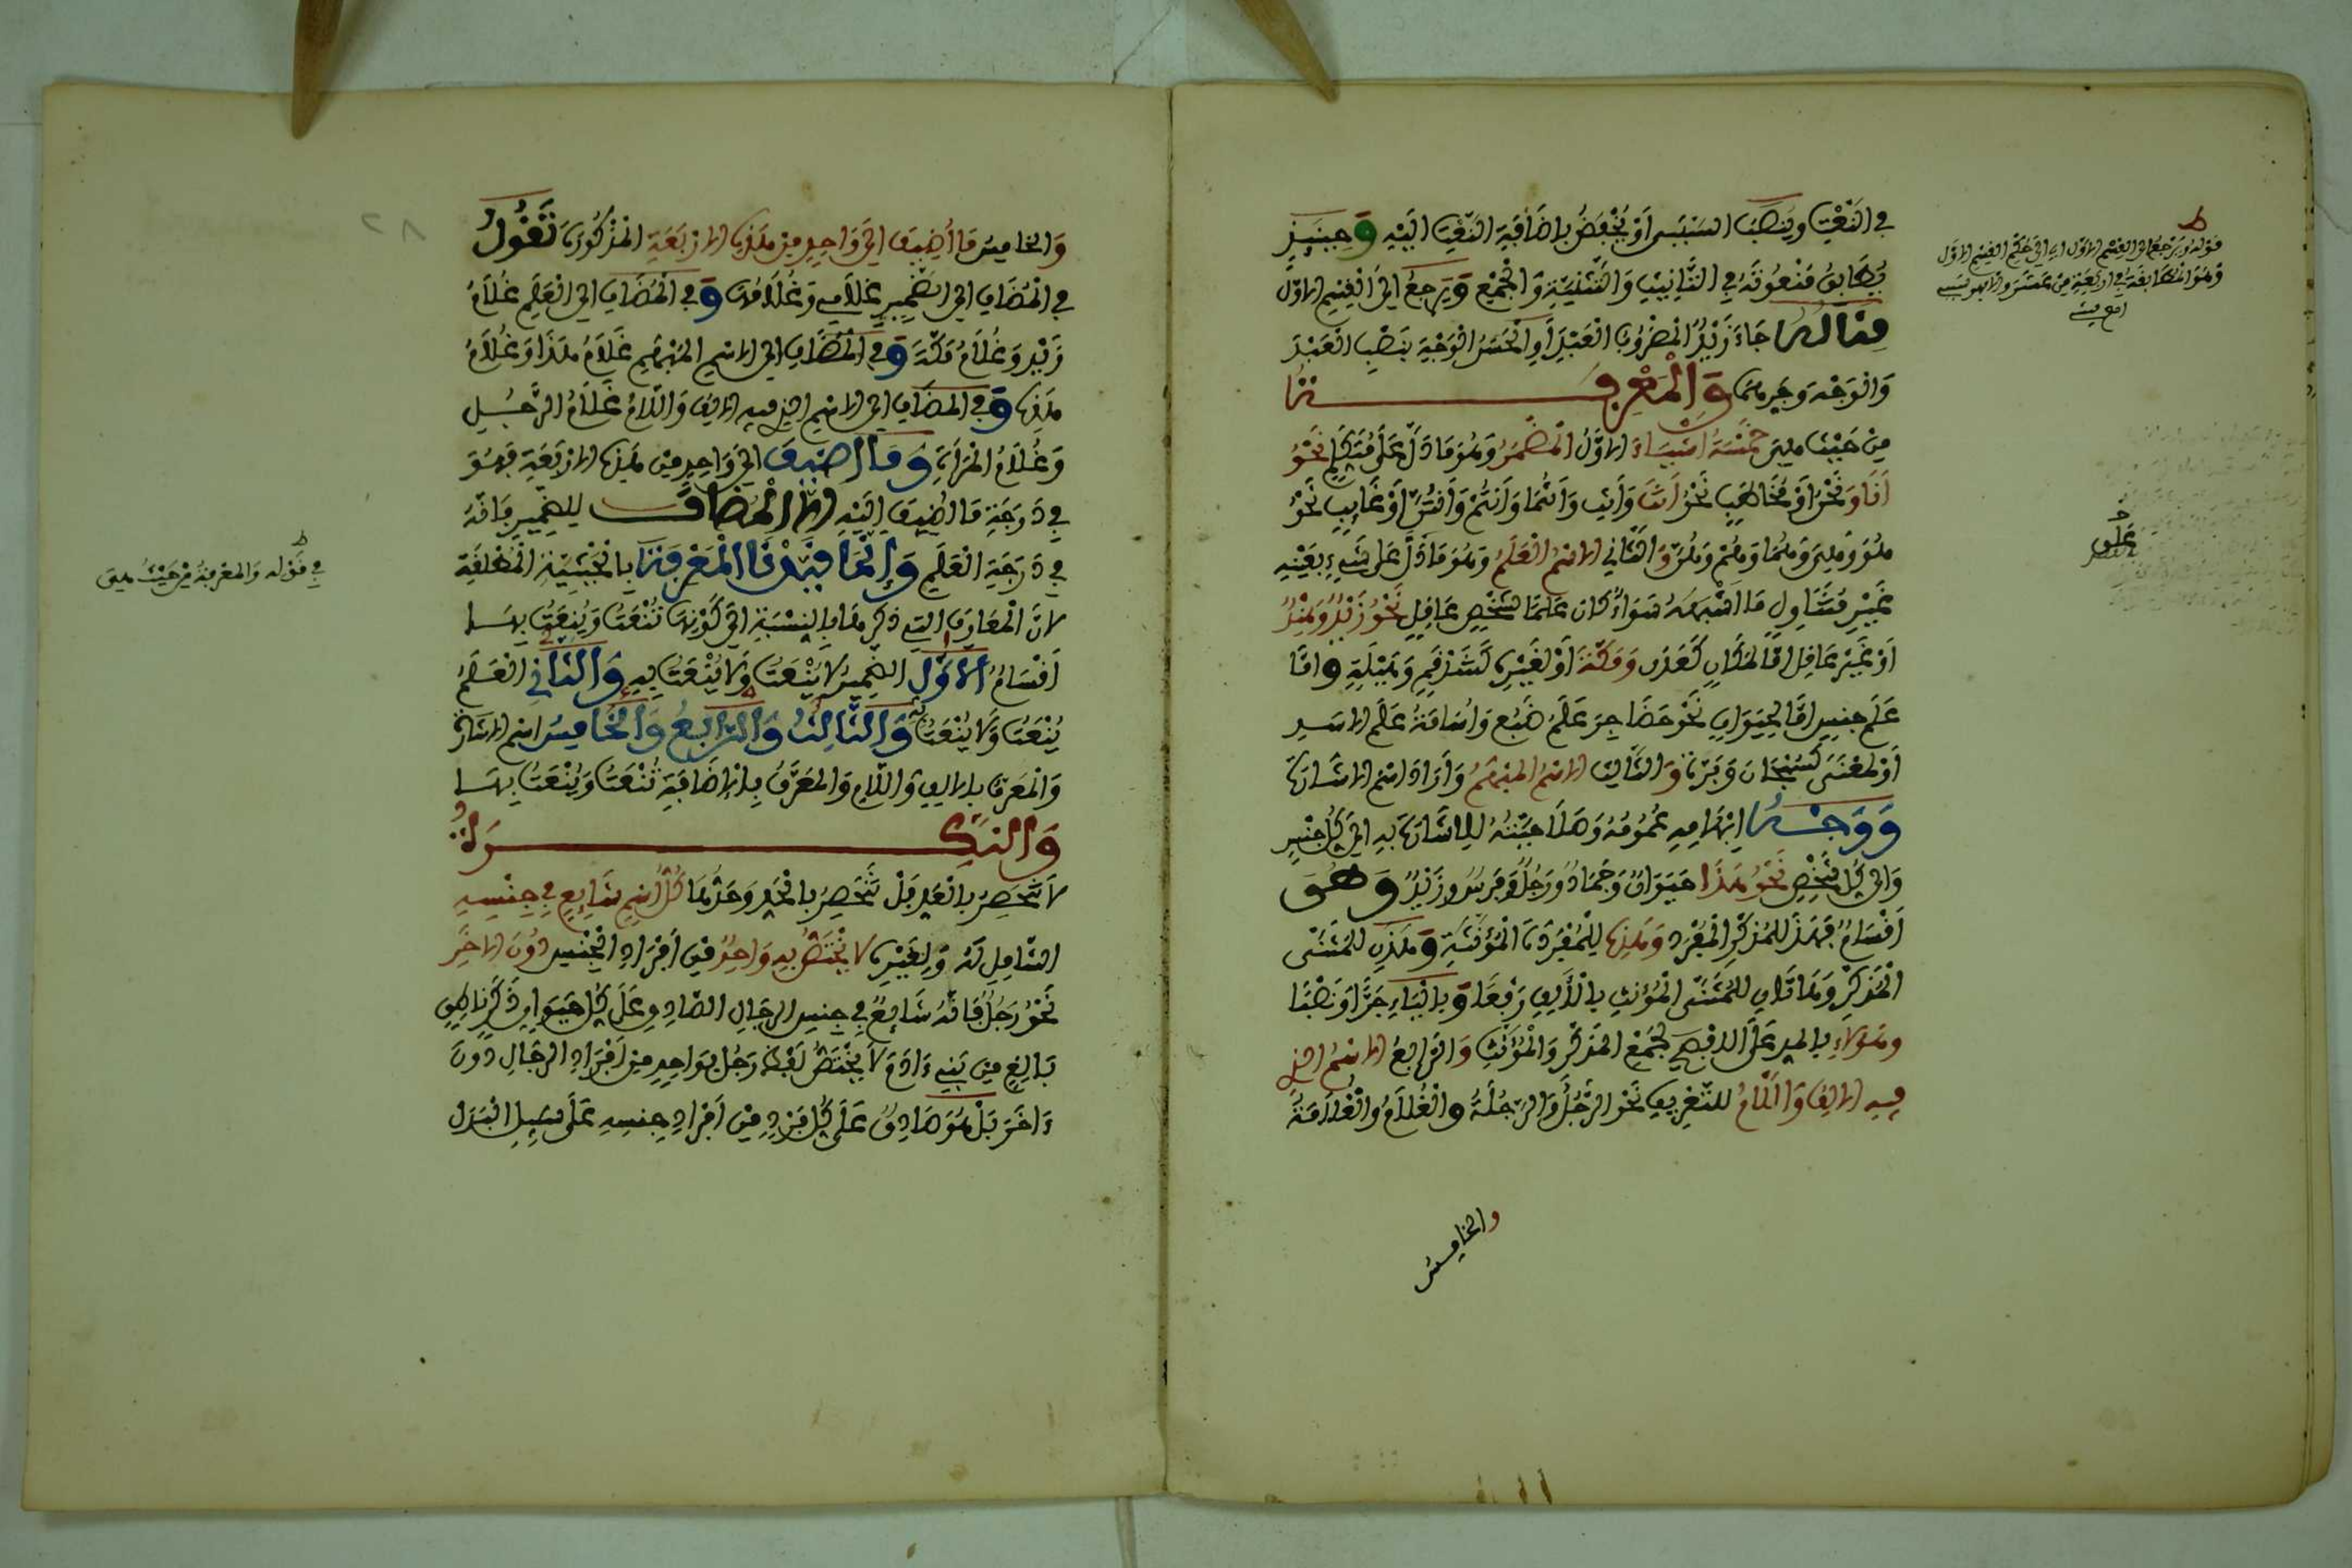 في النعت وينصب السببى او يخفض باضافة النعت اليه وحينئذ
يطابق منعوته في التانيث والتثنية والجمع ويرجع الى القسم الاول
مثاله جاء زيد المضروب العبد او الحسن الوجه بنصب العبد
والوجه وجرهما والمعرفة
من حيث هي خمسة اشياء الاول المضمر وهو ما دل على متكلم نحو
انا ونحن او مخاطب نحو انت وانت وانتما وانتم وانتن او غايب نحو
هو وهي وهما وهم وهن والثاني الاسم العلم وهو ما دل على شيء بعينه
غير متناول ما اشبهه سواء كان علما لشخص عاقل نحو زيد وهند
او غير عاقل اما لمكان كعدن ومكة او لغيره كشذقم وهيلة واما
علم جنس اما لحيوان نحو حضاجر علم ضبع واسامة علم الاسد
او لمعنى كسبحان وبرة والثالث الاسم المبهم واراد اسم الاشارة
ووجه ابهامه عمومه وصلاحيته للاشارة به الى كل جنس
والى كل شخص نحو هذا حيوان وجماد ورجل وفرس وزيد وهو
اقسام فهذا للمذكر المفرد وهذه للمفردة المؤنثة وهذان للمثنى
المذكر وهاتان للمثنى المؤنث بالالف رفعا وبالياء جرا ونصبا
وهؤلاء بالمد على الافصح لجمع المذكر والمؤنث والرابع الاسم الذي
فيه الالف واللام للتعريف نحو الرجل والرجلة والغلام والغلامة
والخامس
قوله ويرجع الى القسم الاول اي الى حكم القسم الاول
وهو المطابقة في اربعة من عشرة
على
والخامس ما اضيف الى واحد من هذه الاربعة المذكورة تقول
في المضاف الى الضمير غلامي وغلامه وفي المضاف الى العلم غلام
زيد وغلام مكة وفي المضاف الى الاسم المبهم غلام هذا وغلام
هذه وفي المضاف الى الاسم الذي فيه الالف واللام غلام الرجل
وغلام المراة وما اضيف الى واحد من هذه الاربعة فهو
في درجة ما اضيف اليه الا المضاف للضمير فانه
في درجة العلم وانما قيدنا المعرفة بالحيثية المطلقة
لان المعارف التي ذكرها بالنسبة الى كونها تنعت وينعت بها
اقسام الاول الضمير لا ينعت ولا ينعت به والثاني العلم
ينعت ولا ينعت به والثالث والرابع والخامس اسم الاشارة
والمعرف بالالف واللام والمعرف بالاضافة تنعت وينعت بها
والنكرة
لا تنحصر بالعد بل تنحصر بالحد وحدها كل اسم شايع في جنسه
الشامل له ولغيره لا يختص به واحد من افراد الجنس دون الاخر
نحو رجل فانه شايع في جنس الرجال الصادق على كل حيوان ذكر ناطق
بالغ من بني ءادم لا يختص لفظ رجل بواحد من افراد الرجال دون
ءاخر بل هو صادق على كل فرد من افراد جنسه على سبيل البدل
في قوله والمعرفة من حيث هي
٢٨